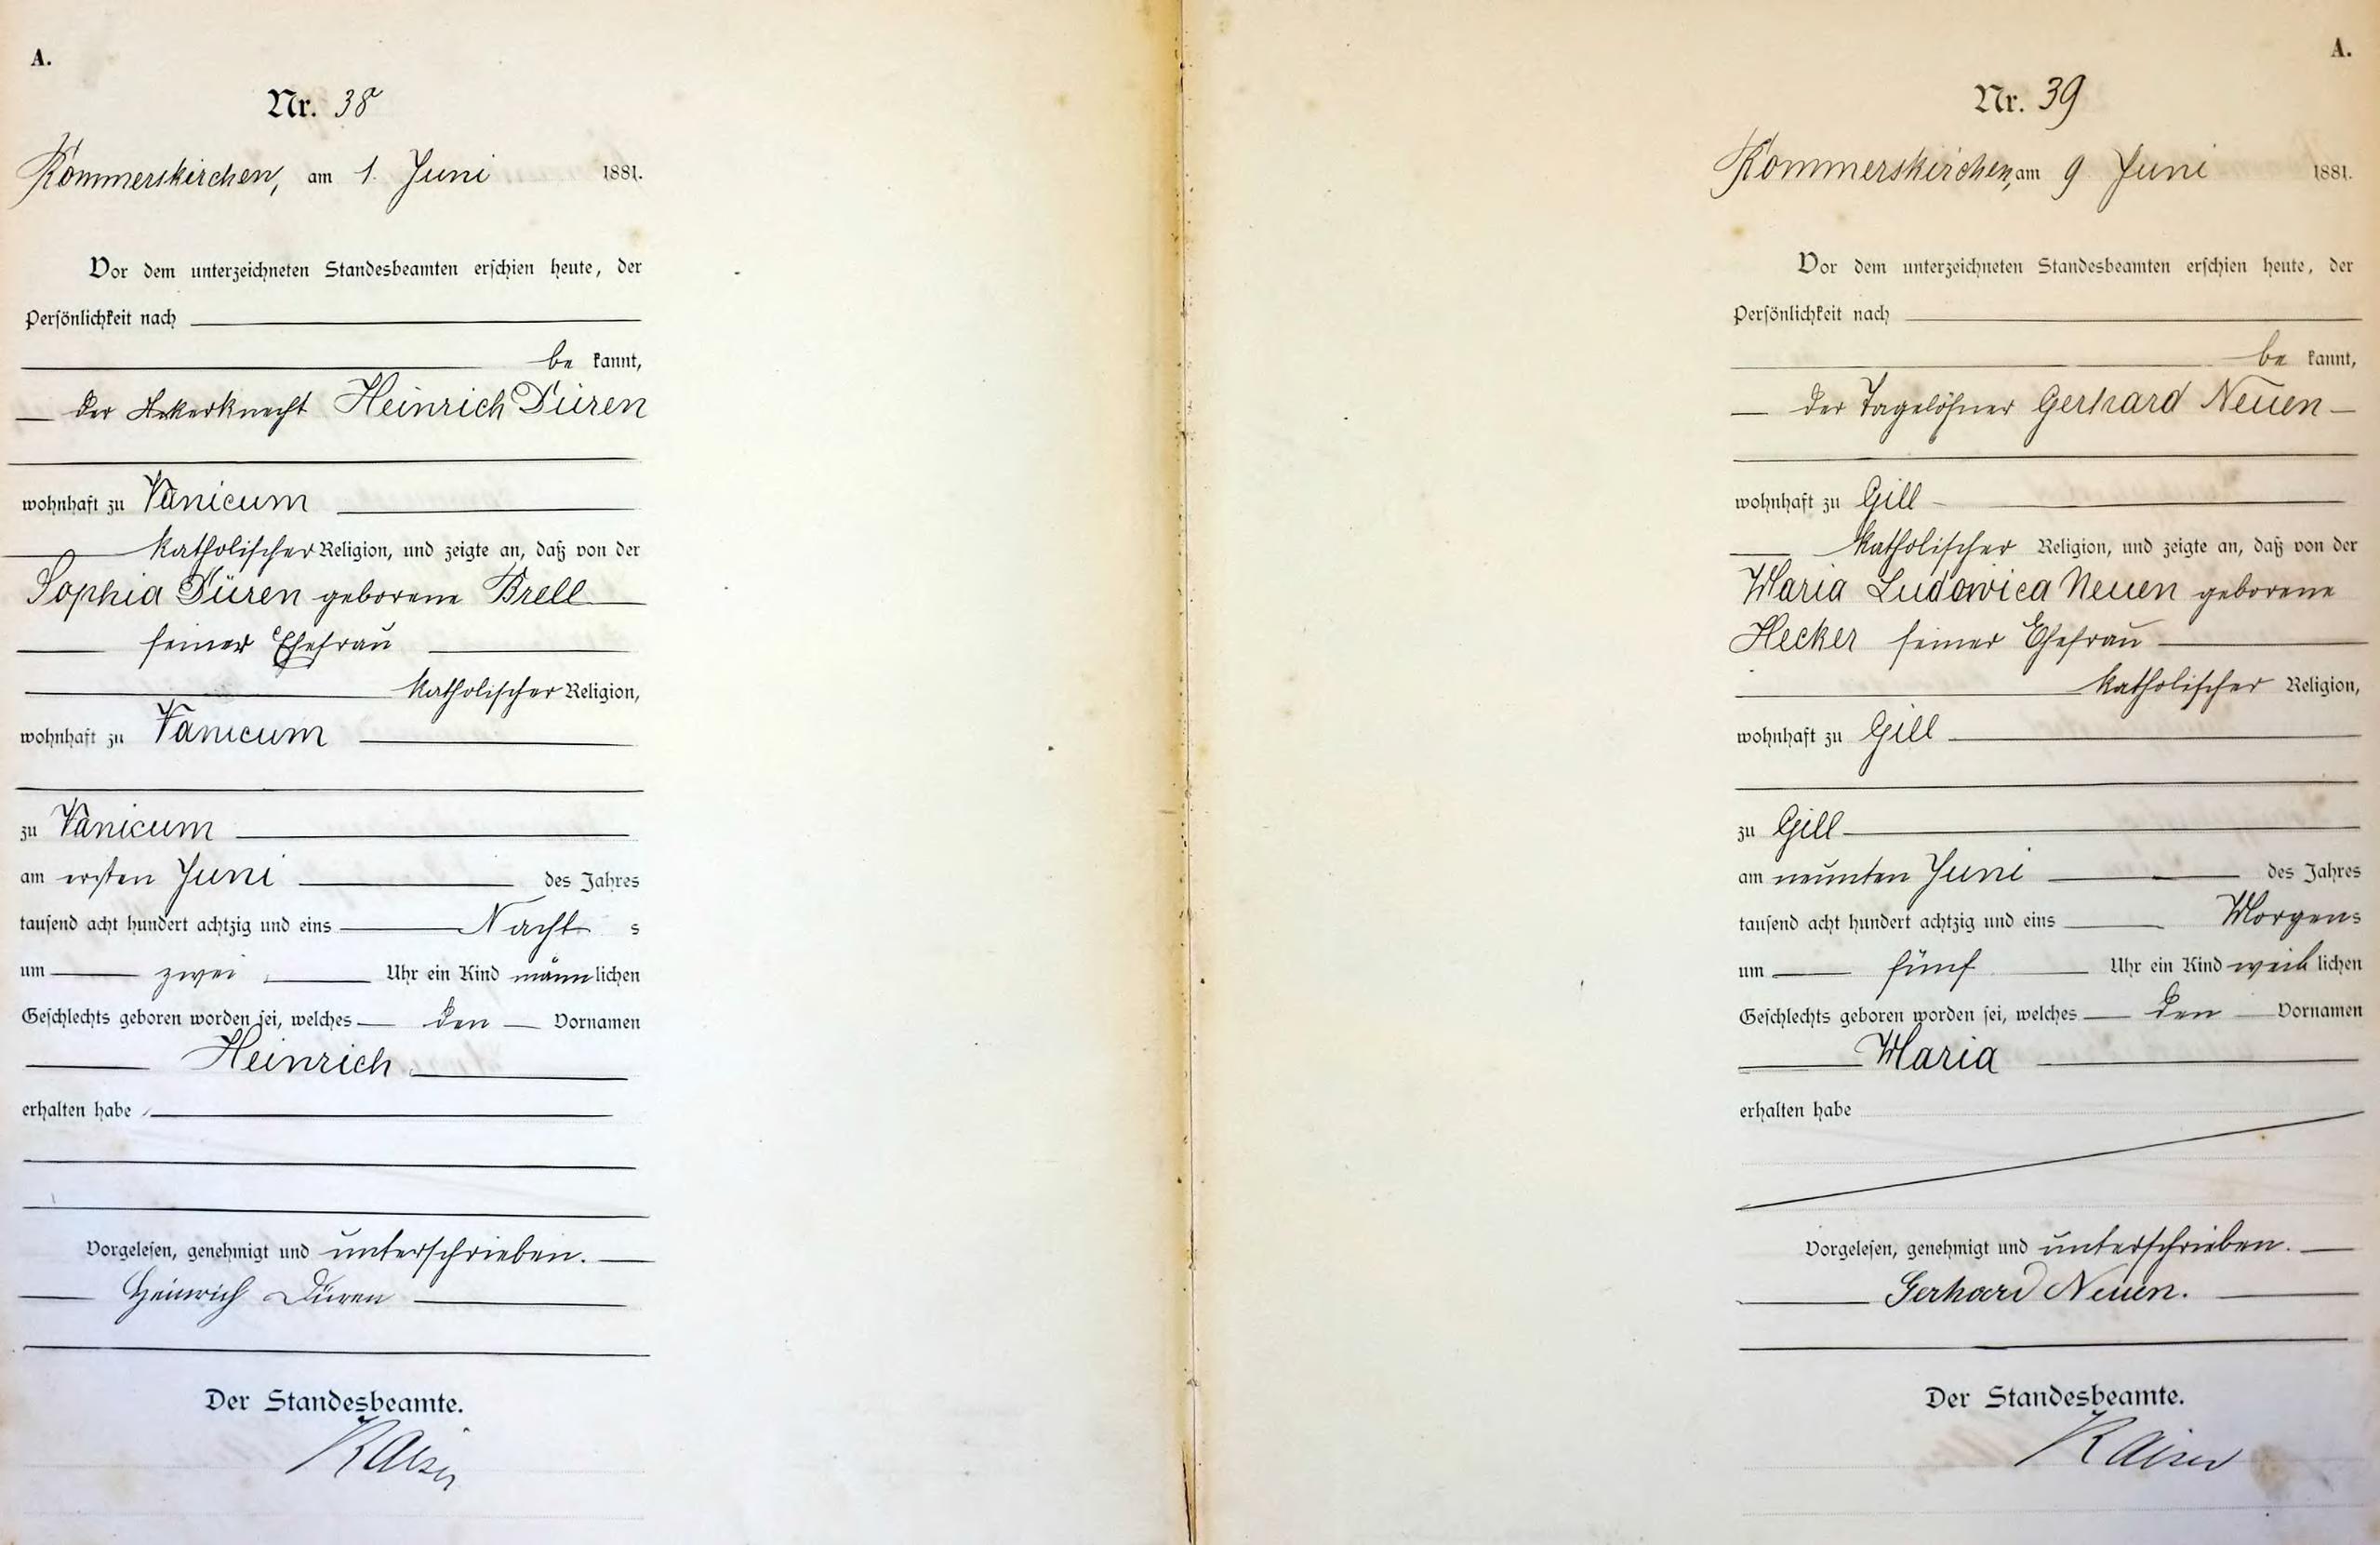 A.
Nr. 38
Rommerskirchen, am 1. Juni 1881.
Vor dem unterzeichneten Standesbeamten erschien heute, der
Persönlichkeit nach
be kannt,
der Ackerknecht Heinrich Düren
wohnhaft zu Vanicum
katholischer Religion, und zeigte an, daß von der
Sophia Düren geborene Brell
seiner Ehefrau
katholischer Religion,
wohnhaft zu Vanicum
zu Vanicum
am ersten Juni des Jahres
tausend acht hundert achtzig und eins Nacht s
um zwei Uhr ein Kind männlichen
Geschlechts geboren worden sei, welches den Vornamen
Heinrich
erhalten habe
Vorgelesen, genehmigt und unterschrieben.
Heinrich Düren
Der Standesbeamte.
Kaiser
A.
Nr. 39
Rommerskirchen, am 9 Juni 1881.
Vor dem unterzeichneten Standesbeamten erschien heute, der
Persönlichkeit nach
be kannt,
der Tagelöhner Gerhard Neuen
wohnhaft zu Gill
katholischer Religion, und zeigte an, daß von der
Maria Ludowica Neuen geborene
Hecker seiner Ehefrau
katholischer Religion,
wohnhaft zu Gill
zu Gill
am neunten Juni des Jahres
tausend acht hundert achtzig und eins Morgens
um fünf Uhr ein Kind weiblichen
Geschlechts geboren worden sei, welches den Vornamen
Maria
erhalten habe
Vorgelesen, genehmigt und unterschrieben.
Gerhard Neuen.
Der Standesbeamte.
Kaiser